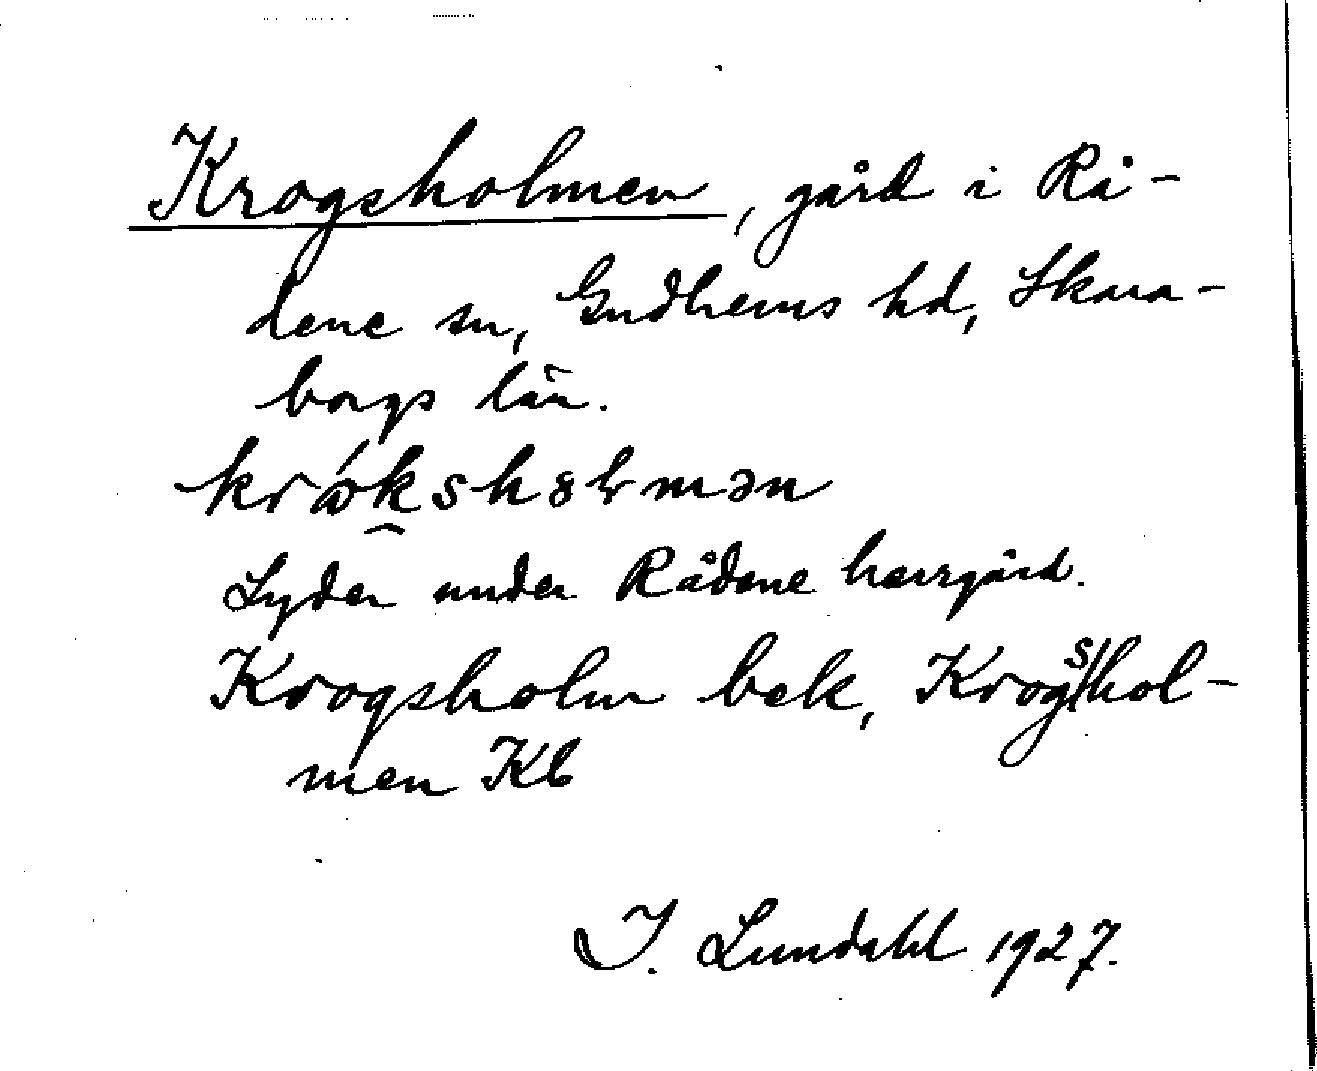 Krogsholmen, gård i Rå-
dene sn, Gudhems hd, Skara-
borgs län.
Lyder under Rådene herrgård.
Krogsholm bek, Krogshol-
men Kb
I. Lundahl 1927.